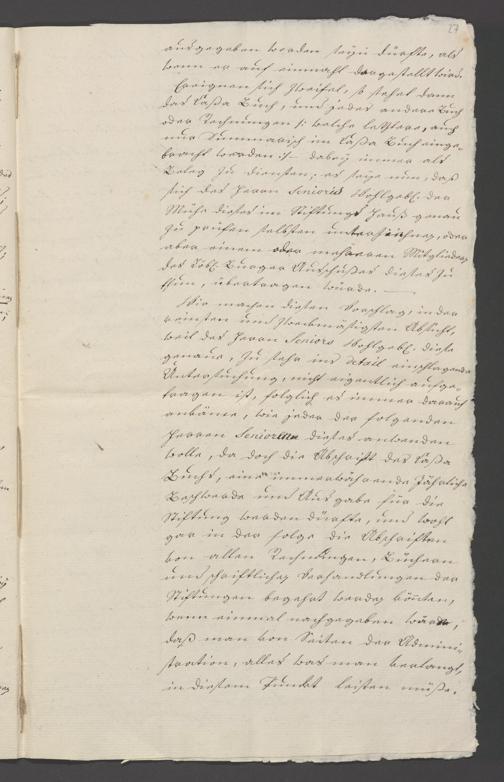 27
ausgegeben worden seyn dürfte, als
wenn er auf einmahl dargestellt wird.
Ereignen sich Zweifel, so stehet dann
das Cassa Buch, und jedes andere Buch
oder Rechnungen /: welche letztere, auch
nur Summarisch im Cassa Buch einge-
bracht worden :/ dabey immer als
Beleg zu diensten; es seye nun, daß
sich des Herrn Seniors Wohlgeb. der
Mühe dieses im Stiftungs Hauß genau
zu prüfen selbsten unterziehen, oder
aber einem oder mehreren Mitgliedern
des Löbl. Burger Ausschußes dieses zu
thun, übertragen würde. —
Wir machen diesen Vorschlag, in der
reinsten und zweckmäsigsten Absicht,
weil des Herrn Seniors Wohlgeb. diese
genaue, zu sehr ins detail einschlagende
Untersuchung, nicht eigentlich aufge-
tragen ist, folglich es immer darauf
ankäme, wie jeder der folgenden
Herren Senioren dieses anwenden
wolle, da doch die Abschrift des Cassa
Buchs, eine immerwährende jährliche
Beschwerde und Ausgabe für die
Stiftung werden dürfte, und wohl
gar in der Folge die Abschriften
von allen Rechnungen, Büchern
und schriftlichen Verhandlungen der
Stiftungen begehrt werden könten,
wenn einmal nachgegeben wäre,
daß man von Seiten der Admini-
stration, alles was man verlangt,
in diesem Punkt leisten müße.